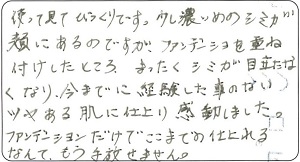 使って見てびっくりです。少し濃いめのシミが
頬にあるのですが、ファンデーショを重ね
付けしたところ、まったくシミが目立たな
くなり、今までに経験した事のない
ツヤある肌に仕上り感動しました。
ファンデーションだけでここまでの仕上れる
なんて、もう手放せません。